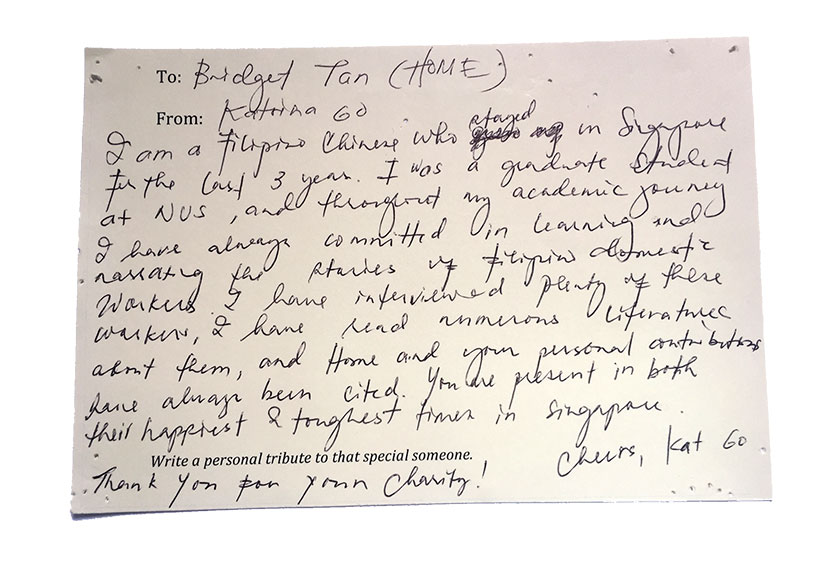 To: Bridget Tan (HOME)
From: Katrina Go
I am a Filipino Chinese who stayed in Singapore
for the last 3 years. I was a graduate student
at NUS, and throughout my academic journey
I have always committed in learning and
narrating the stories of Filipino domestic
workers. I have interviewed plenty of these
workers, I have read numerous literatures
about them, and Home and your personal contributions
have always been cited. You are present in both
their happiest & toughest times in Singapore.
Write a personal tribute to that special someone.
Cheers, Kat Go
Thank you for your Charity!